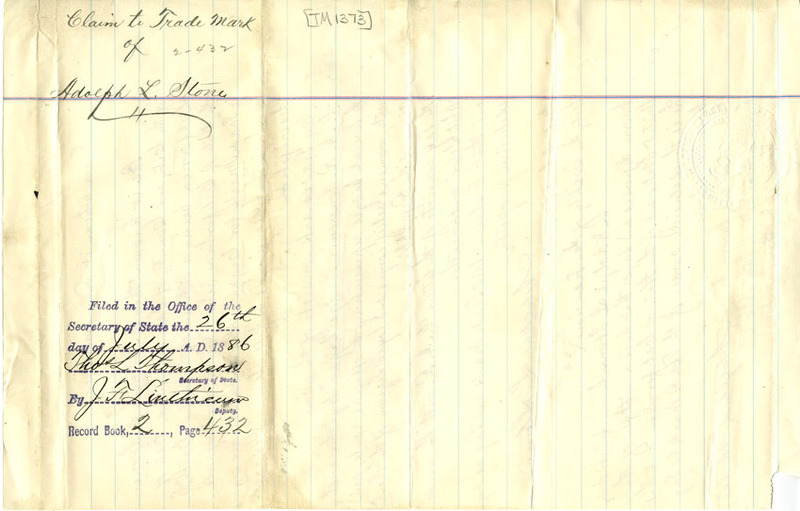 Claim to Trade Mark
of 2-432
[TM1373]
Adolph L. Stone
Filed in the Office of the
Secretary of State the 26th
day of July A. D. 1886
Thos L. Thompson
Secretary of State.
By J. F. Linthicum
Deputy.
Record Book, 2, Page 432